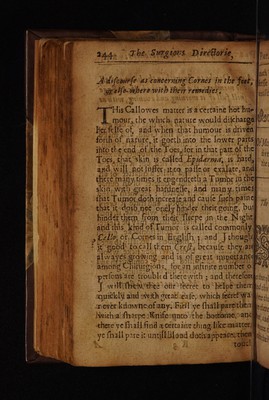 244 The Surgions Directorie,
A discourse as concerning Cornes in the feet,
or else-where with their remedies.
THis Callowes matter is a certaine hot hu-
mour, the which nature would discharge
her selfe of, and when that humour is driven
forth of nature, it goeth into the lower parts
into the end of the Toes, for in that part of the
Toes, that skin is called Epiderma, is hard,
and will not suffer it to passe or exalate, and
there many times it engendreth a Tumor in the
skin with great hardnesse, and many times
that Tumor doth increase and cause such paine
that it doth not onely hinder their going, but
hinder them from their sleepe in the Night
and this kind of Tumor is called commonly
Callo, or Cornes in English; and I thought
it good to call them Crest, because they are
alwayes growing, and is of great importance
among Chirurgions, for an infinite number of
persons are troubled therewith; and therefore
I will shew thee one secret to helpe them
quickly and with great ease, which secret was
never knowne of any. First ye shall pare them
with a sharpe Knife unto the bottome, and
there ye shall find a certaine thing like matter,
ye shall pare it untill blood doth appeare, then
touch